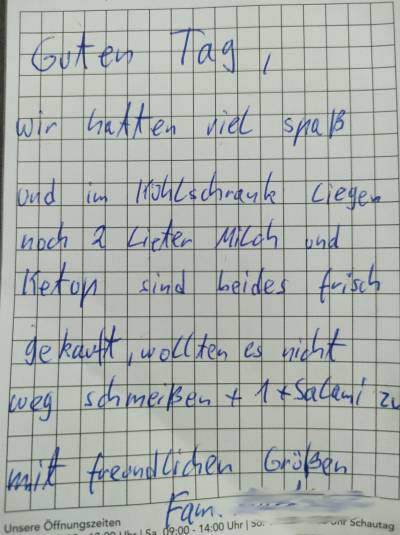 Guten Tag,
wir hatten viel spaß
und im Kühlschrank Liegen
noch 2 Lieter Milch und
Ketop sind beides frisch
gekauft, wollten es nicht
weg schmeißen + 1 + Salami zu
mit freundlichen Größen
Fam.
Unsere Öffnungszeiten
Uhr | Sa. 09:00 - 14:00 Uhr | So. Uhr Schautag